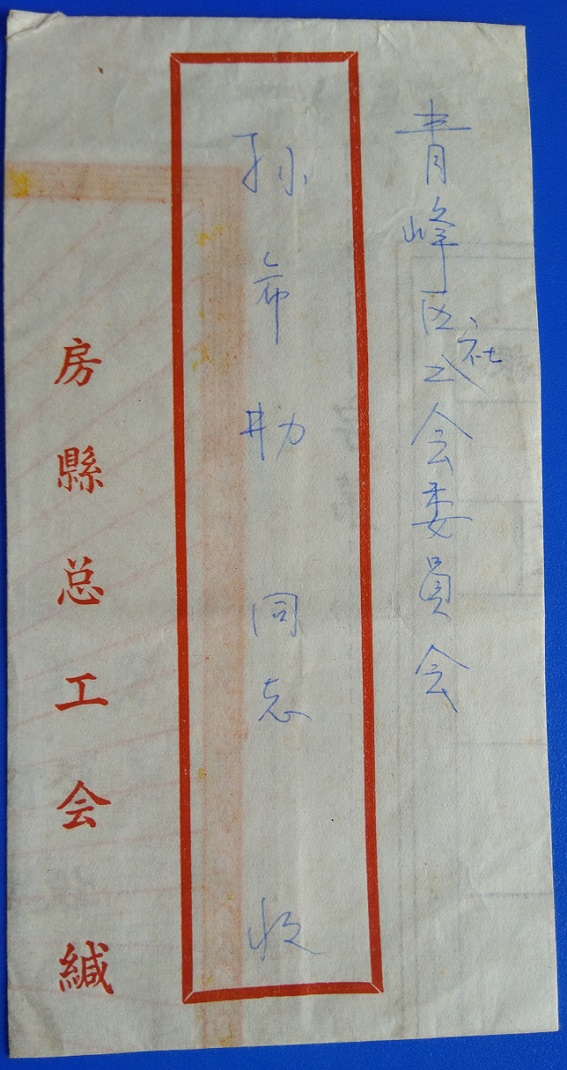 青峰区社会委员会
孙希 同志 收
房縣总工会 緘